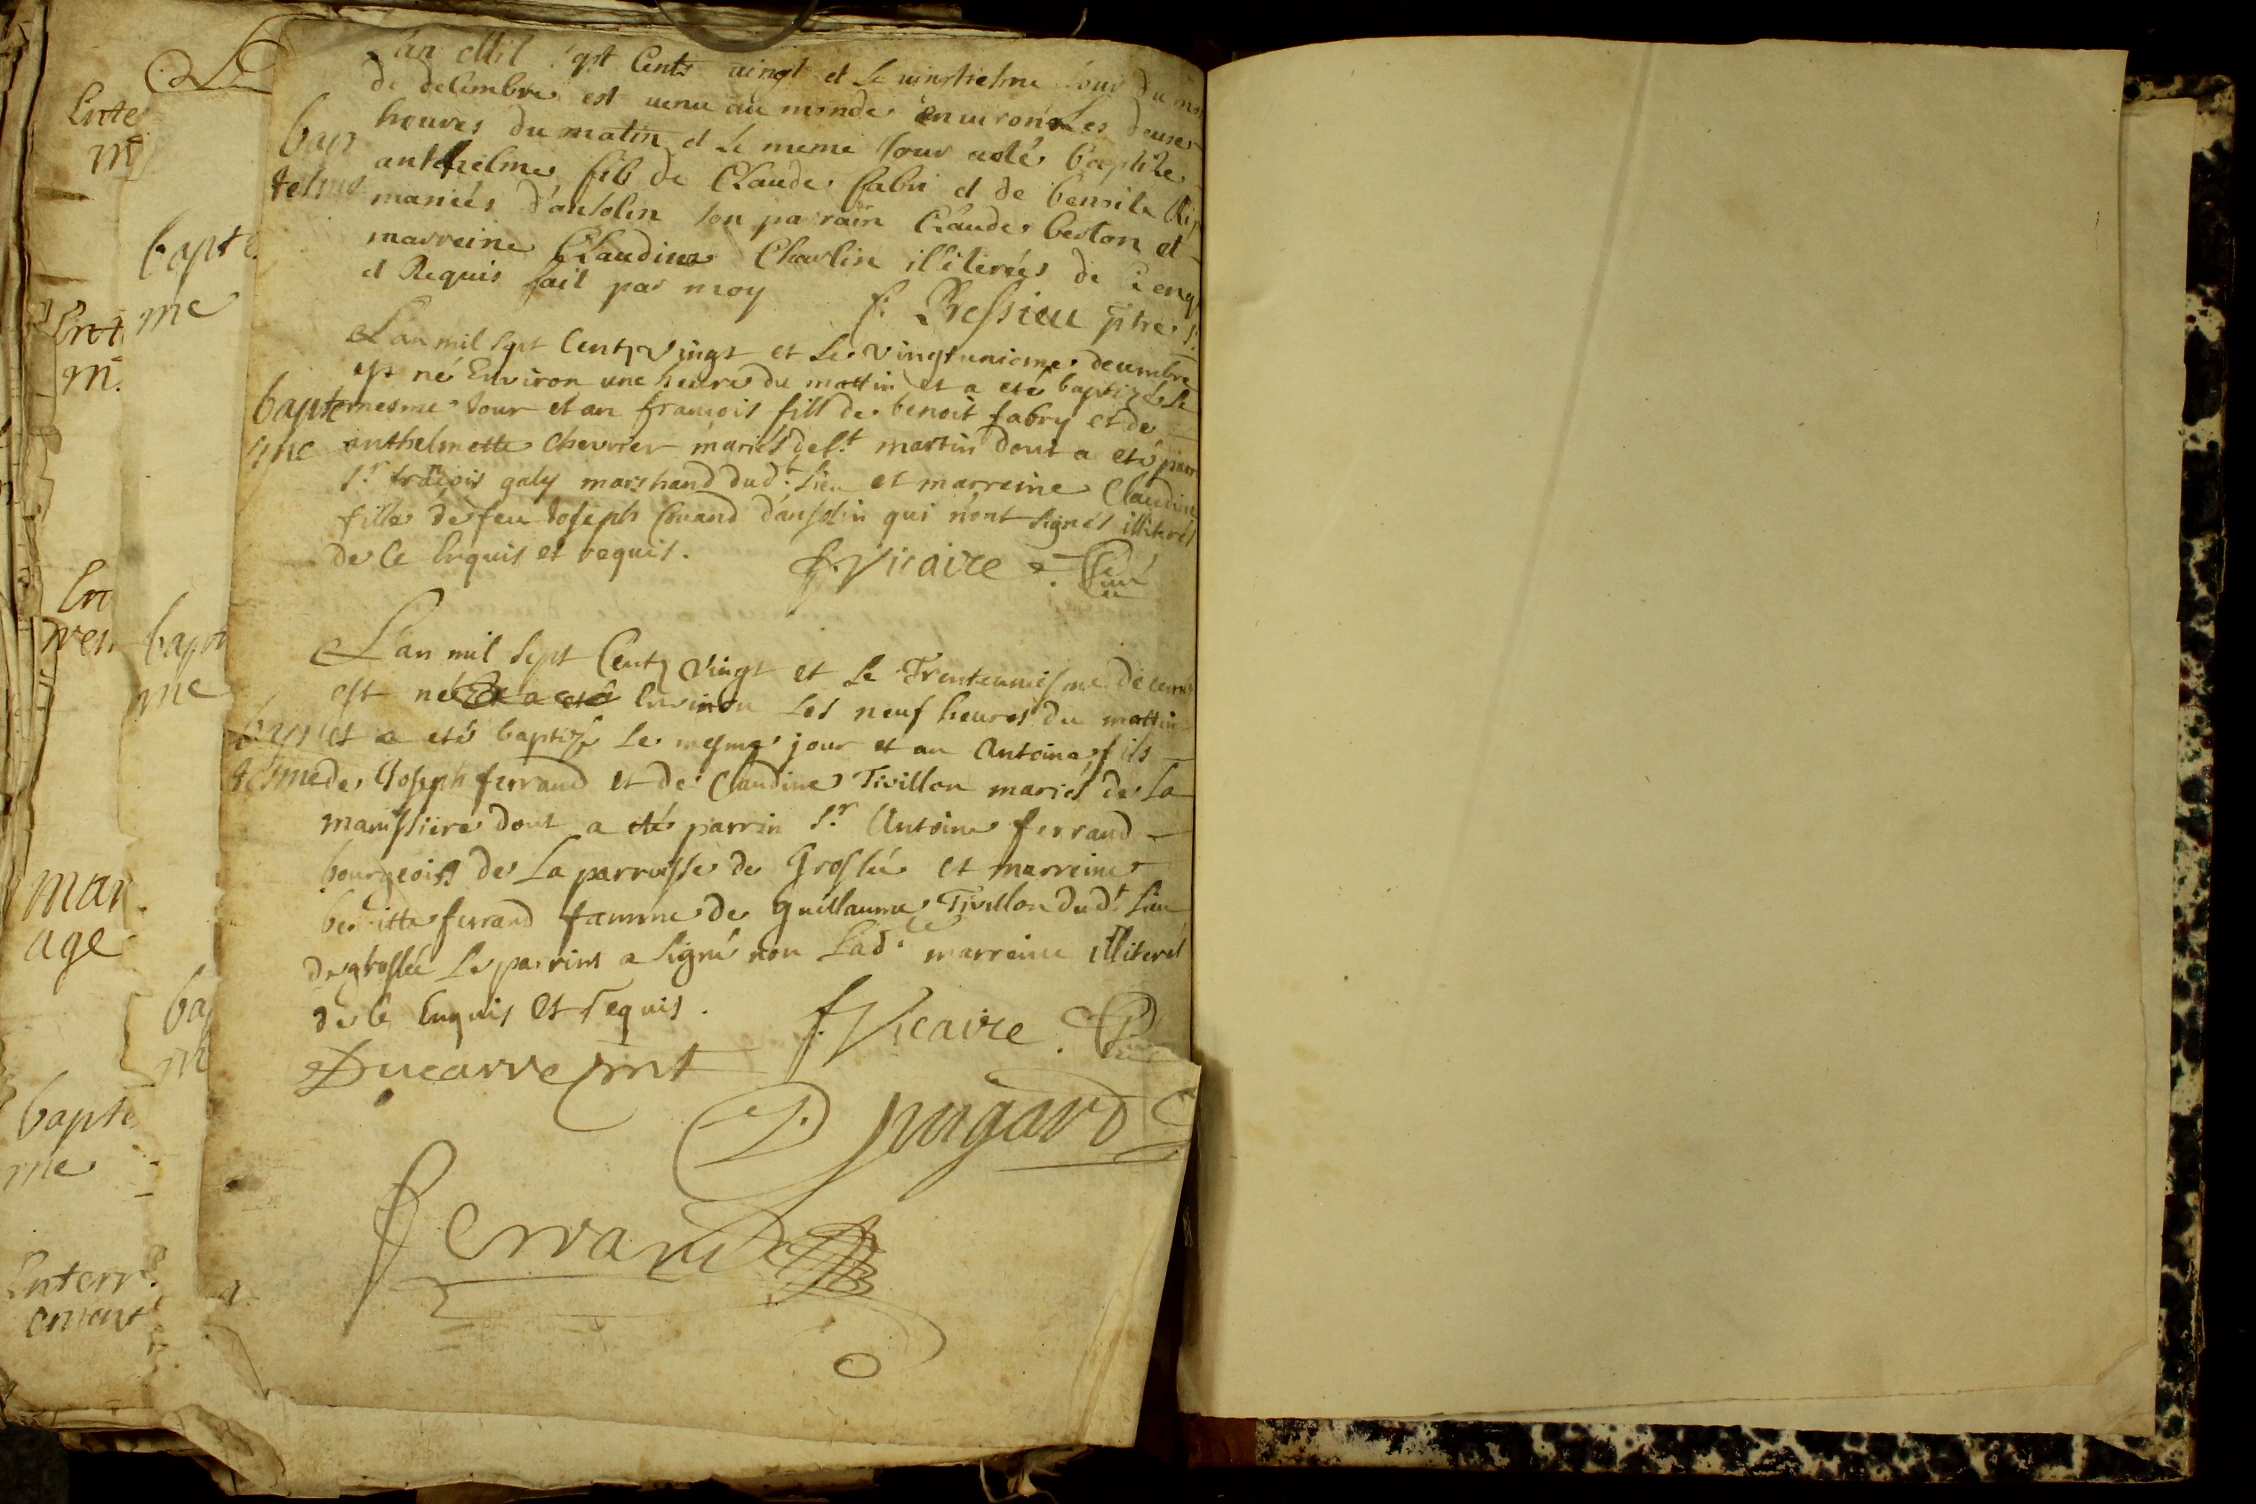 L'an Mil sept Cents vingt et le vinstiesme Jour du mo
de decembre est venu au monde environ Les deuse
heures du matin et le meme Jour a eté baptise
bap
anthelme fils de Claude fabri et de benoite
tesme
mariés d'ansolin son parrain Claude berton et
marreine Claudine Charlin illiterées de
et Requis fait par moy f. Pressieu ptre
L'an mil sept Cents vingt et le vingtunieme decembre
est né Environ une heure du mattin et a eté baptizé Le
bapte mesme Jour et an francois fils de benoit fabry et de
me anthelmette chevrier mariés de st martin dont a eté parr
sr francois galy marchand dudt. lieu et marreine Claudine
fille de feu Joseph Cruand d'ansolin qui n'ont signés illiterés
de ce Enquis et requis. f. Vicaire Curé
L'an mil sept Cents vingt et le Trenteuniesme decem
est né Et a eté Environ Les neuf heures du mattin
bap et a eté baptizé le mesme jour et an Antoine fils
tesme de Joseph ferrand et de Claudine Tivillon mariés de La
manissiere dont a eté parrin sr. Antoine ferrand
bourgeois de La parroisse de Groslée et marreine
benoitte ferrand famme de guillaume Tivillon dudt lieu
de groslée Le parrins a signé non Ladce. marreine illiterée
de ce Enquis et requis. f. Vicaire. Curé
Ducarre pnt
D pugard
ferrand
Ente
m
bapte
me
Ent
m.
Ent
men
bapte
me
mari
age
ba
m
bapte
me
Enterr
ement